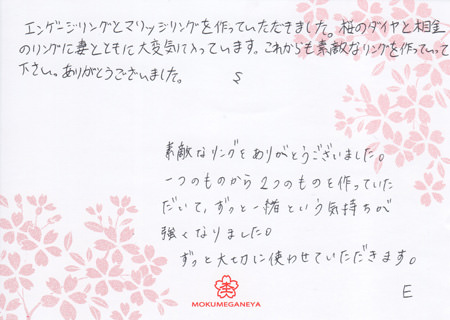 エンゲージリングとマリッジリングを作っていただきました。桜のダイヤと木目金
のリングに妻とともに大変気に入っています。これからも素敵なリングを作っていって
下さい。ありがとうございました。 S
素敵なリングをありがとうございました。
一つのものから2つのものを作っていた
だいて、ずっと一緒という気持ちが
強くなりました。
ずっと大切に使わせていただきます。
E
MOKUMEGANEYA